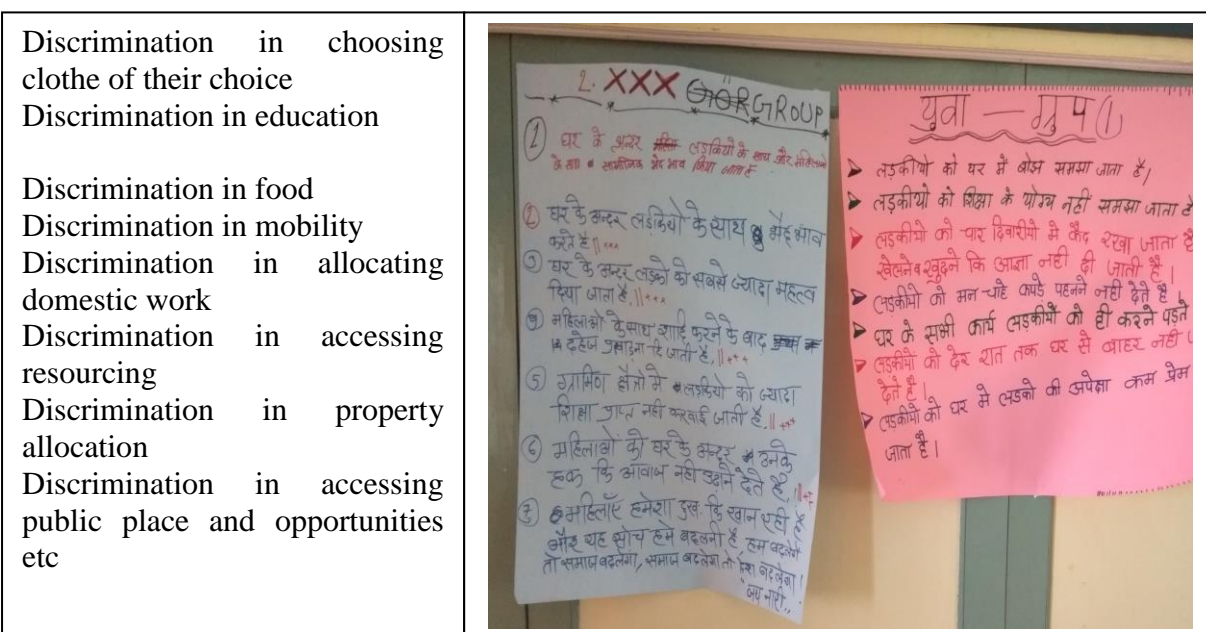 Discrimination in choosing
clothe of their choice
Discrimination in education
Discrimination in food
Discrimination in mobility
Discrimination in allocating
domestic work
Discrimination in accessing
resourcing
Discrimination in property
allocation
Discrimination in accessing
public place and opportunities
etc
2. XXX GROUP
① घर के अन्दर लड़कियों के साथ और महिलाओ
के साथ सामाजिक भेद भाव किया जाता है.
② घर के अन्दर लड़कियो के साथ भेद भाव
करते है||***
③ घर के अन्दर लड़को को सबसे ज्यादा महत्व
दिया जाता है.||***
④ महिलाओ के साथ शादि करने के बाद
दहेज दि जाती है.||***
⑤ ग्रामिण क्षैत्रो मे लडकियो को ज्यादा
शिक्षा प्राप्त नही करवाई जाती है.||***
⑥ महिलाओं को घर के अन्दर उनके
हक कि आवाज नही उठाने देते है.||**
⑦ महिलाएँ हमेशा दुख. कि खान रही है
और यह सोच हमे बदलनी है, हम बदलेगे
तो समाज बदलेगा, समाज बदलेगा तो देश बदलेगा।
"जय नारी,,
युवा — ग्रुप (1)
➤ लड़कीयो को घर में बोझ समझा जाता है|
➤ लड़कीयो को शिक्षा के योग्य नहीं समझा जाता है
➤ लड़कीयो को चार दिवारीयो मे कैद रखा जाता है
खेलने व खुदने कि आज्ञा नही दी जाती है|
➤ लड़कीयो को मन-चाहे कपडे पहनने नही देते है|
➤ घर के सभी कार्य लड़कीयों को ही करने पड़ते
➤ लड़कीयो को देर रात तक घर से बाहर नही
देते है|
➤ लड़कीयो को घर मे लड़को की अपेक्षा कम प्रेम
जाता है|